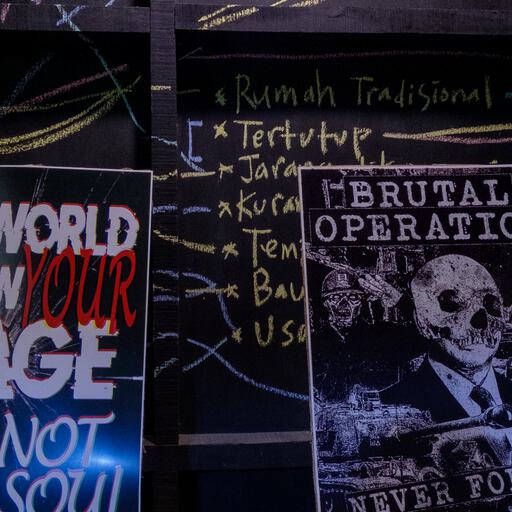 * Rumah Tradisional
* Tertutup
* Jaran
* Kuran
* Tem
* Bau
* Usa
WORLD
YOUR
AGE
NOT
SOUL
BRUTAL
OPERATIO
NEVER FO